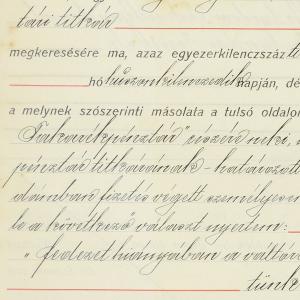 tári titkár
megkeresésére ma, azaz egyezerkilenczszáz ti
hó huszonkilenczedik napján, dé
a melynek szószerinti másolata a tulsó oldalon
Takarékpénztár" czége neki, a
pénztár titkárának - határozott
dámban fizetés végett személyesen
le a következő választ nyertem:
"fedezet hiányában a váltóra
tünk